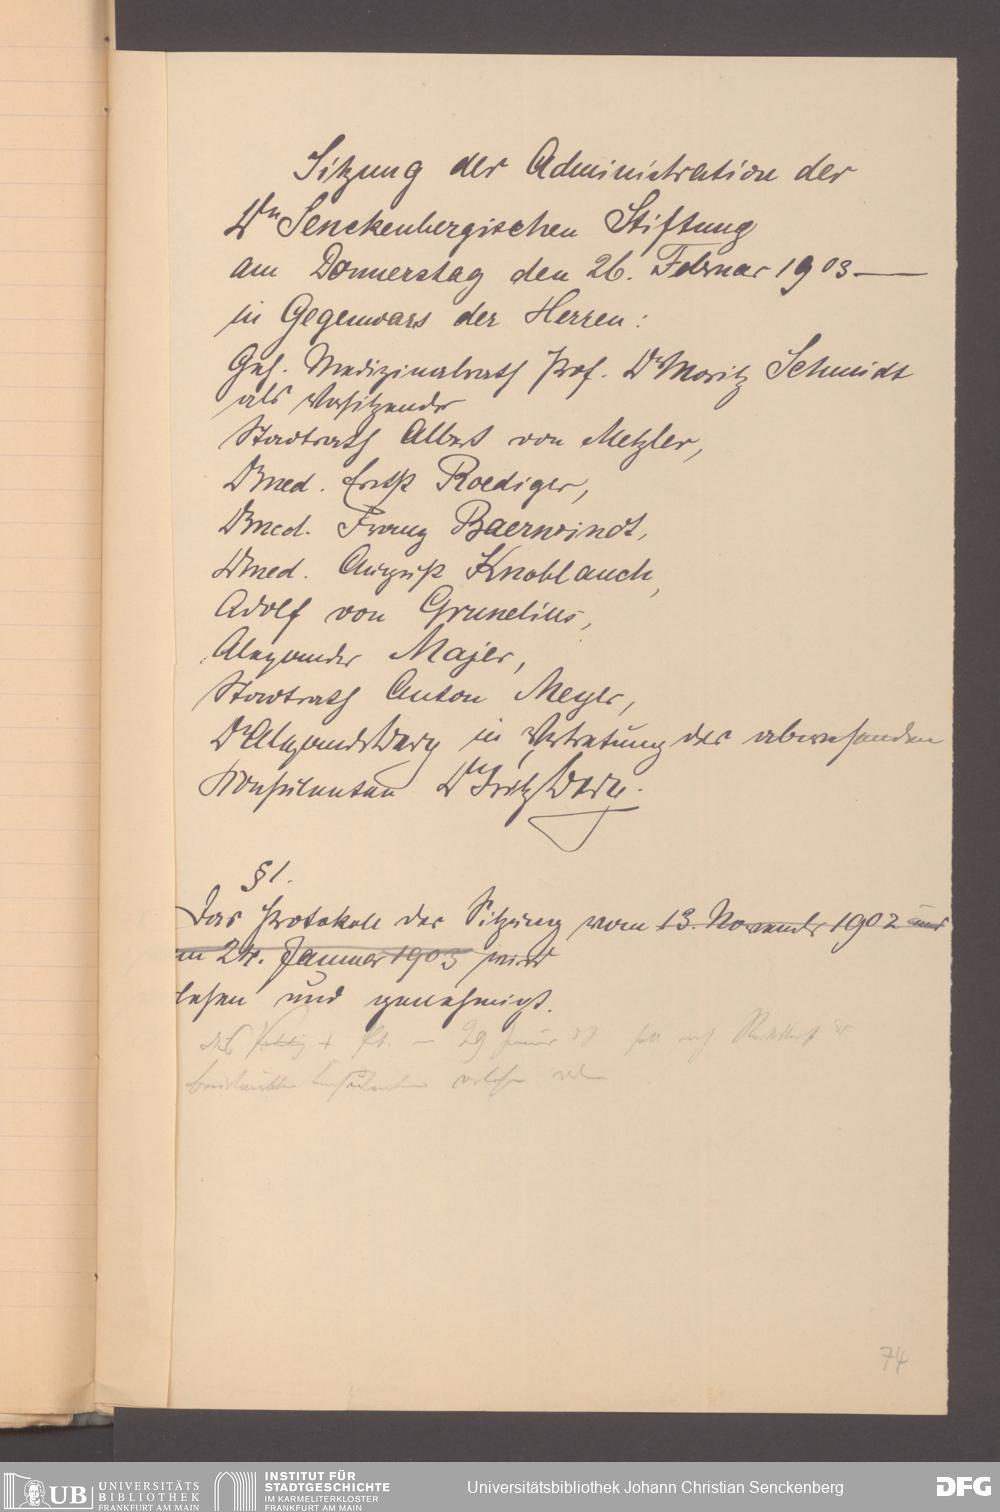 Sitzung der Administration der
Dr Senckenbergischen Stiftung
am Donnerstag den 26. Februar 1903
in Gegenwart der Herren:
Geh. Medizinalrath Prof. Dr Moritz Schmidt
als Vorsitzender
Stadtrath Albert von Metzler,
Dr med. Ernst Roediger,
Dr med. Franz Baerwindt,
Dr med. August Knoblauch,
Adolf von Grunelius,
Alexander Majer,
Stadtrath Anton Meyer,
Dr Alexander Berg in Vertretung des abwesenden
Konsulenten Dr Fritz Berg.
§ 1.
Das Protokoll der Sitzung vom 13. November 1902 und
24. Januar 1903 wird
lesen und genehmigt.
29
74
UB UNIVERSITÄTS
BIBLIOTHEK
FRANKFURT AM MAIN
INSTITUT FÜR
STADTGESCHICHTE
IM KARMELITERKLOSTER
FRANKFURT AM MAIN
Universitätsbibliothek Johann Christian Senckenberg
DFG